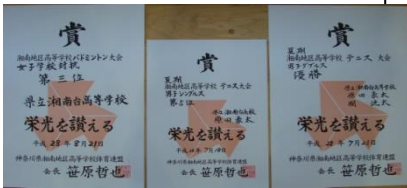 賞
湘南地区高等学校バドミントン大会
女子学校対抗
第三位
県立湘南台高等学校
栄光を讃える
平成28年8月21日
神奈川県湘南地区高等学校体育連盟
会長 笹原哲也
賞
夏期
湘南地区高等学校テニス大会
男子シングルス
第5位
県立湘南台高校
原田豪太
栄光を讃える
神奈川県湘南地区高等学校体育連盟
会長 笹原哲也
賞
夏期
湘南地区高等学校テニス大会
男子ダブルス
優勝
県立湘南台高校
原田豪太
栄光を讃える
平成28年7月21日
神奈川県湘南地区高等学校体育連盟
会長 笹原哲也